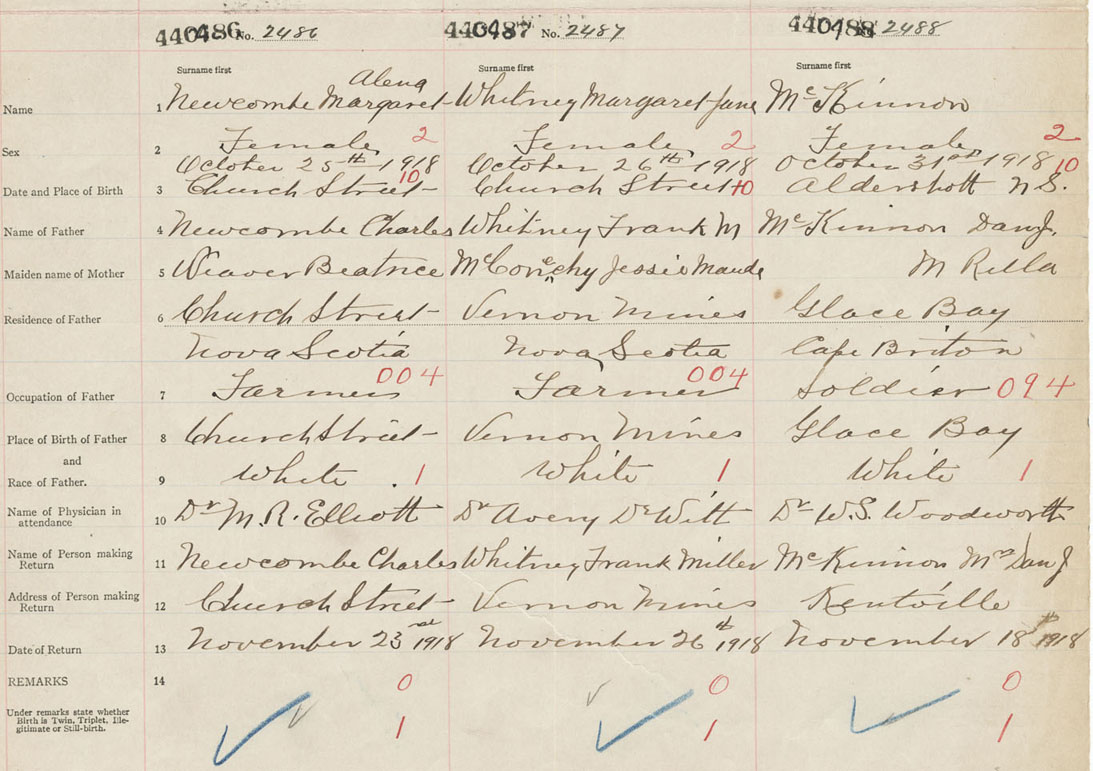 440486 No. 2486 440487 No. 2487 440488 2488
Surname first Surname first Surname first
Alena
Name 1 Newcombe Margaret Whitney Margaret Jane McKinnon
Sex 2 Female 2 Female 2 Female 2
October 25th 1918 October 26th 1918 October 31st 1918
Date and Place of Birth 3 Church Street 10 Church Street 10 Aldershott N.S. 10
Name of Father 4 Newcombe Charles Whitney Frank M McKinnon Dan J.
Maiden name of Mother 5 Weaver Beatrice McConechy Jessie Maude M Rella
Residence of Father 6 Church Street Vernon Mines Glace Bay
Nova Scotia Nova Scotia Cape Briton
Occupation of Father 7 Farmer 004 Farmer 004 Soldier 094
Place of Birth of Father 8 Church Street Vernon Mines Glace Bay
and
Race of Father. 9 White 1 White 1 White 1
Name of Physician in attendance 10 Dr M.R. Elliott Dr Avery DeWitt Dr W.S. Woodworth
Name of Person making Return 11 Newcombe Charles Whitney Frank Miller McKinnon Mrs Dan J
Address of Person making Return 12 Church Street Vernon Mines Kentville
Date of Return 13 November 23 1918 November 26th 1918 November 18th 1918
REMARKS 14 0 0 0
Under remarks state whether
Birth is Twin, Triplet, Ille-
gitimate or Still-birth. 1 1 1